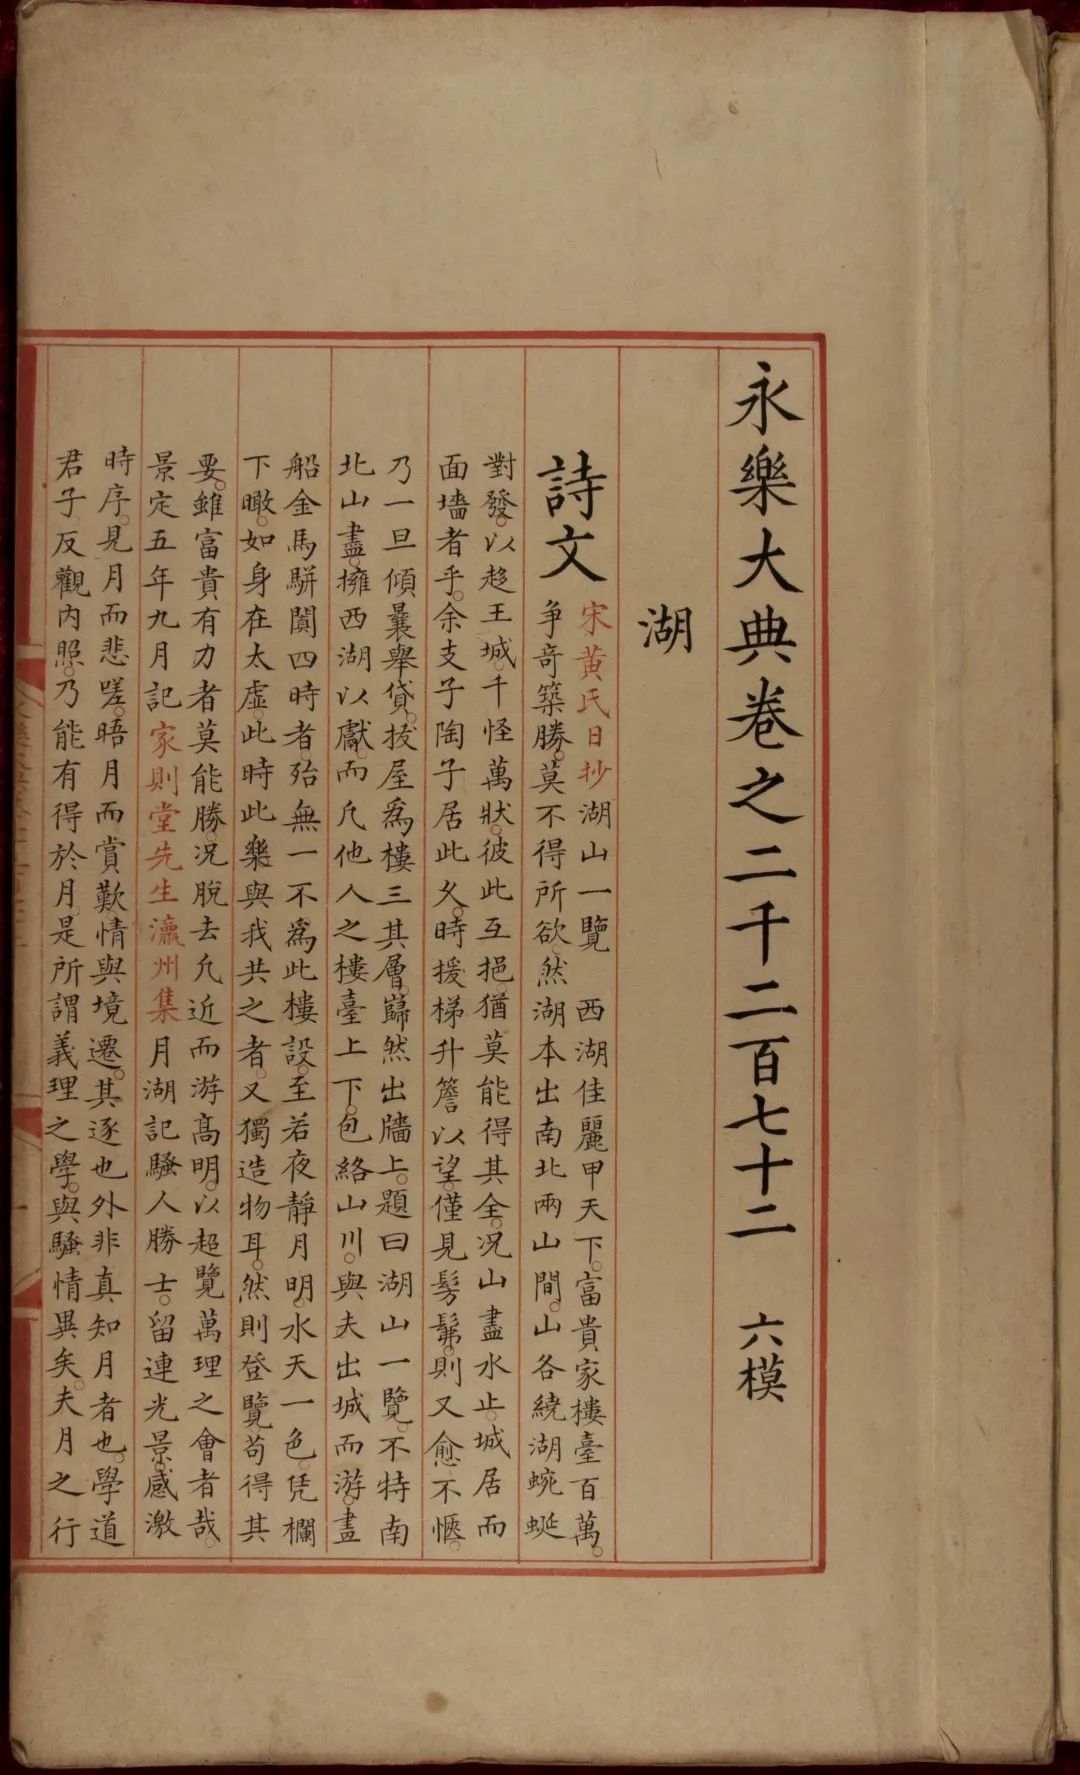 永樂大典卷之二千二百七十二 六模
湖
詩文
宋黃氏日抄湖山一覽 西湖佳麗甲天下富貴家樓臺百萬
争竒築勝莫不得所欲然湖本出南北兩山間山各繞湖蜿蜒
對發以趍王城千怪萬狀彼此互挹猶莫能得其全況山盡水止城居而
面墻者乎余支子陶子居此久時援梯升簷以望僅見髣髴則又愈不愜
乃一旦傾囊舉貸拔屋爲樓三其層巋然出牆上題曰湖山一覽不特南
北山盡擁西湖以獻而凢他人之樓臺上下包絡山川與夫出城而游畫
船金馬駢闐四時者殆無一不爲此樓設至若夜靜月明水天一色凭欄
下瞰如身在太虛此時此樂與我共之者又獨造物耳然則登覽茍得其
要雖富貴有力者莫能勝況脫去凢近而游髙明以超覽萬理之會者哉
景定五年九月記家則堂先生瀛州集月湖記騷人勝士留連光景感激
時序見月而悲嗟晤月而賞歎情與境遷其逐也外非真知月者也學道
君子反觀內照乃能有得於月是所謂義理之學與騷情異矣夫月之行